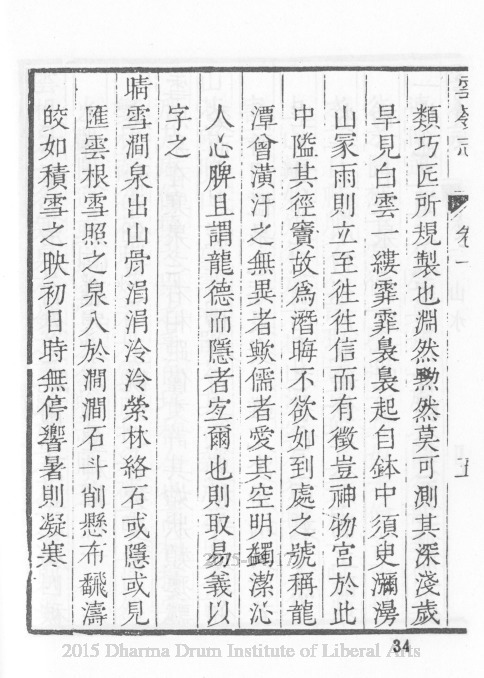 雲嶺志
卷一
五
類巧匠所規製也淵然黝然莫可測其深淺歲
旱見白雲一縷霏霏裊裊起自鉢中須臾瀰漫
山冢雨則立至徃徃信而有徵豈神物宮於此
中隘其徑竇故爲潛晦不欲如到處之號稱龍
潭會潢汙之無異者歟儒者愛其空明蠲潔沁
人心脾且謂龍德而隱者宐爾也則取易義以
字之
晴雪澗泉出山骨涓涓泠泠縈林絡石或隱或見
匯雲根雪照之泉入於澗澗石斗削懸布飜濤
皎如積雪之映初日時無停響暑則凝寒
34
2015 Dharma Drum Institute of Liberal Arts